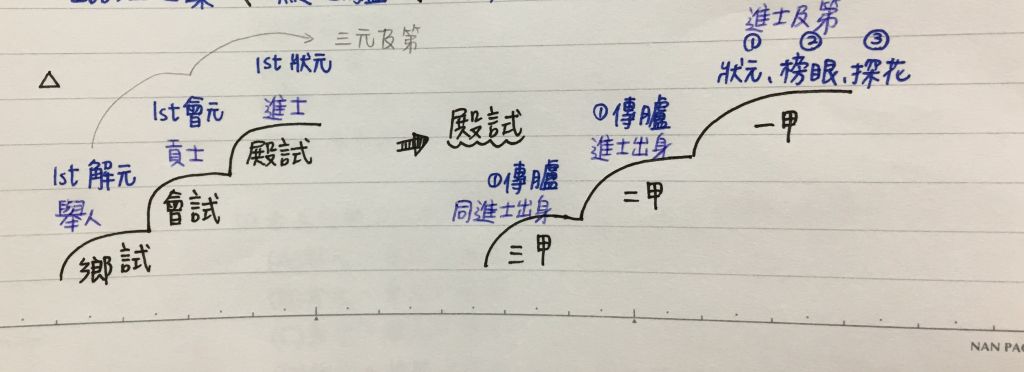 三元及第
△
1st 狀元
1st 會元
進士
貢士
殿試
1st 解元
舉人
會試
鄉試
⇒ 殿試
進士及第
① ② ③
狀元、榜眼、探花
一甲
①傳臚
進士出身
二甲
①傳臚
同進士出身
三甲
NAN PAO